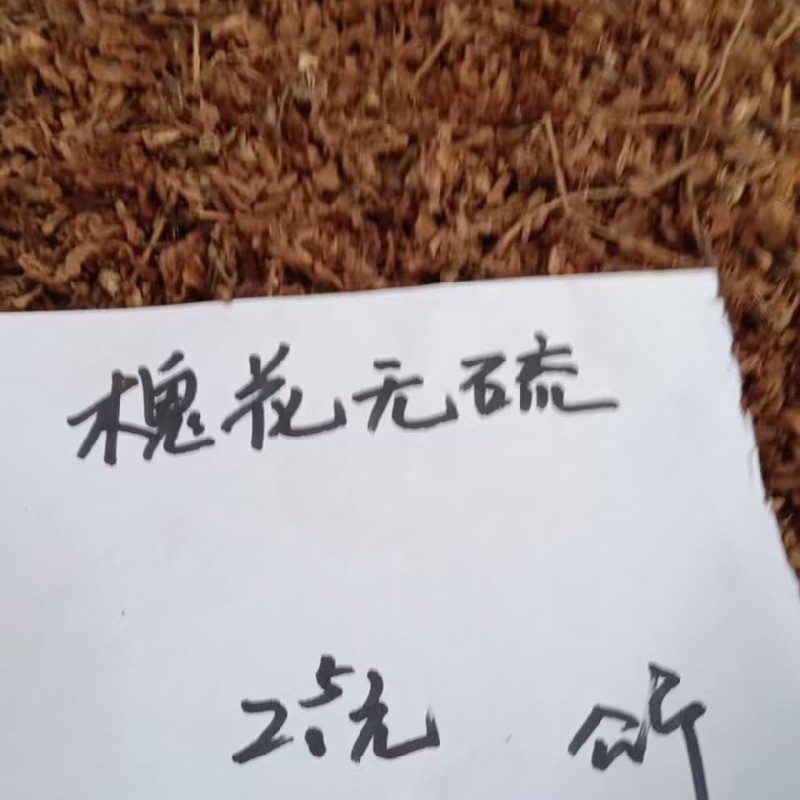 槐花无硫
2.5元